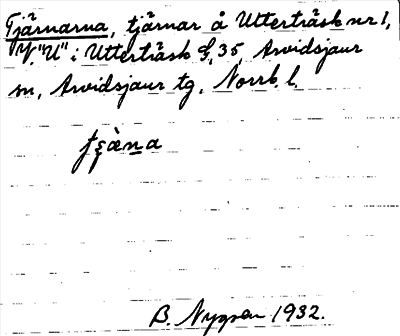 Tjärnarna, tjärnar å Utterträsk nr 1,
V. "U" i Utterträsk G, 35, Arvidsjaur
sn, Arvidsjaur tg, Norrb. l.
B. Nygren 1932.